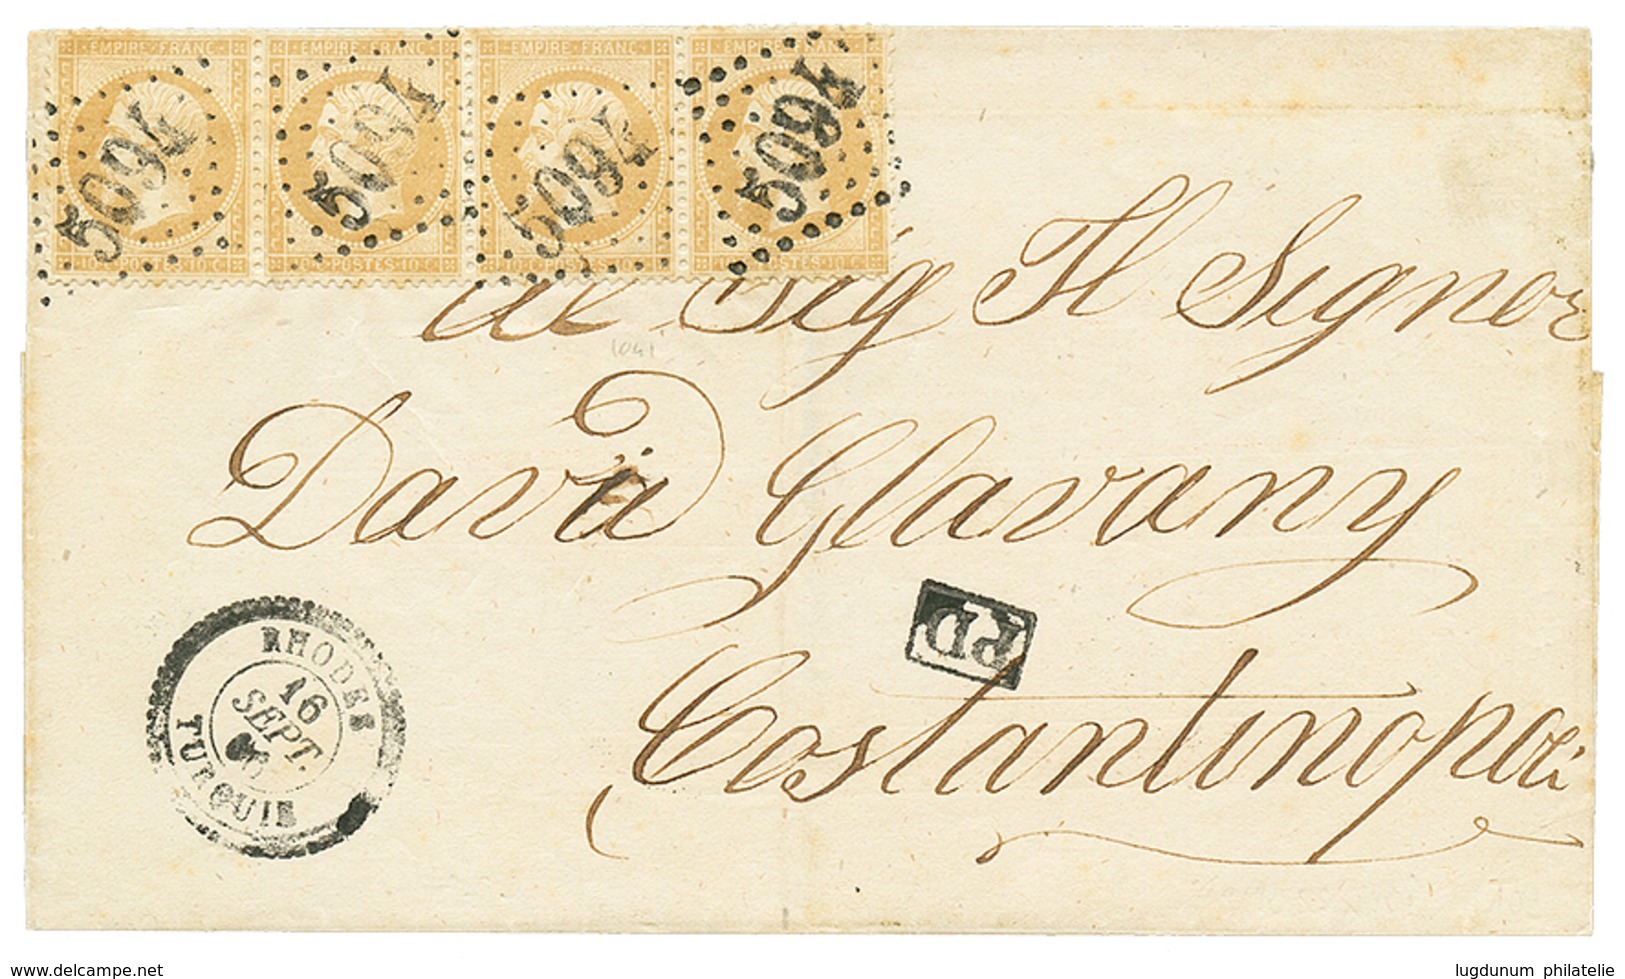 EMPIRE FRANC EMPIRE FRANC EMPIRE FRANC EMPIRE FRANC
5094 5094 5094 5094
10 C POSTES 10 C 10 C POSTES 10 C POSTES 10 C POSTES 10 C
al Sig Il Signor
David Glavany
PD
Costantinopoli
RHODES
16
SEPT.
TURQUIE
www.delcampe.net
lugdunum philatelie